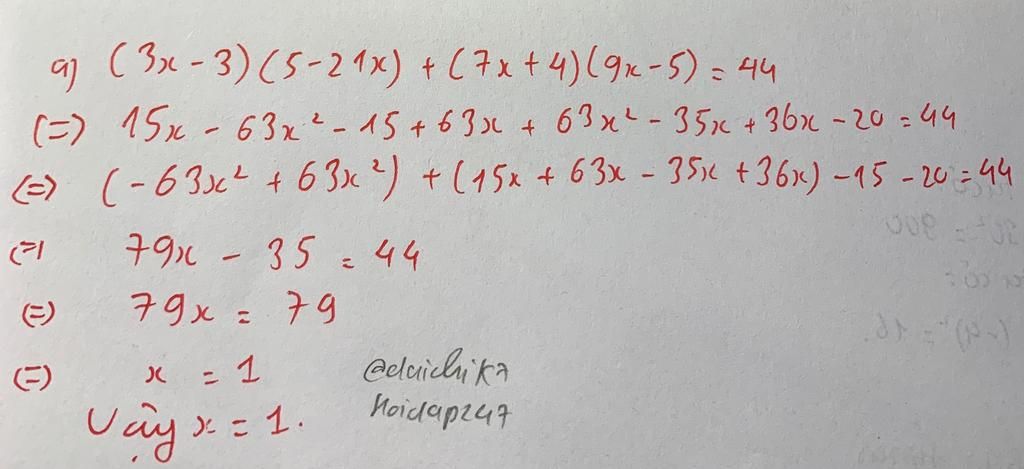 a) (3x - 3)(5 - 21x) + (7x + 4)(9x - 5) = 44
(=) 15x - 63x² - 15 + 63x + 63x² - 35x + 36x - 20 = 44
(=) (-63x² + 63x²) + (15x + 63x - 35x + 36x) - 15 - 20 = 44
(=) 79x - 35 = 44
(=) 79x = 79
(=) x = 1
Vậy x = 1.
@daichik7
Hoidap247